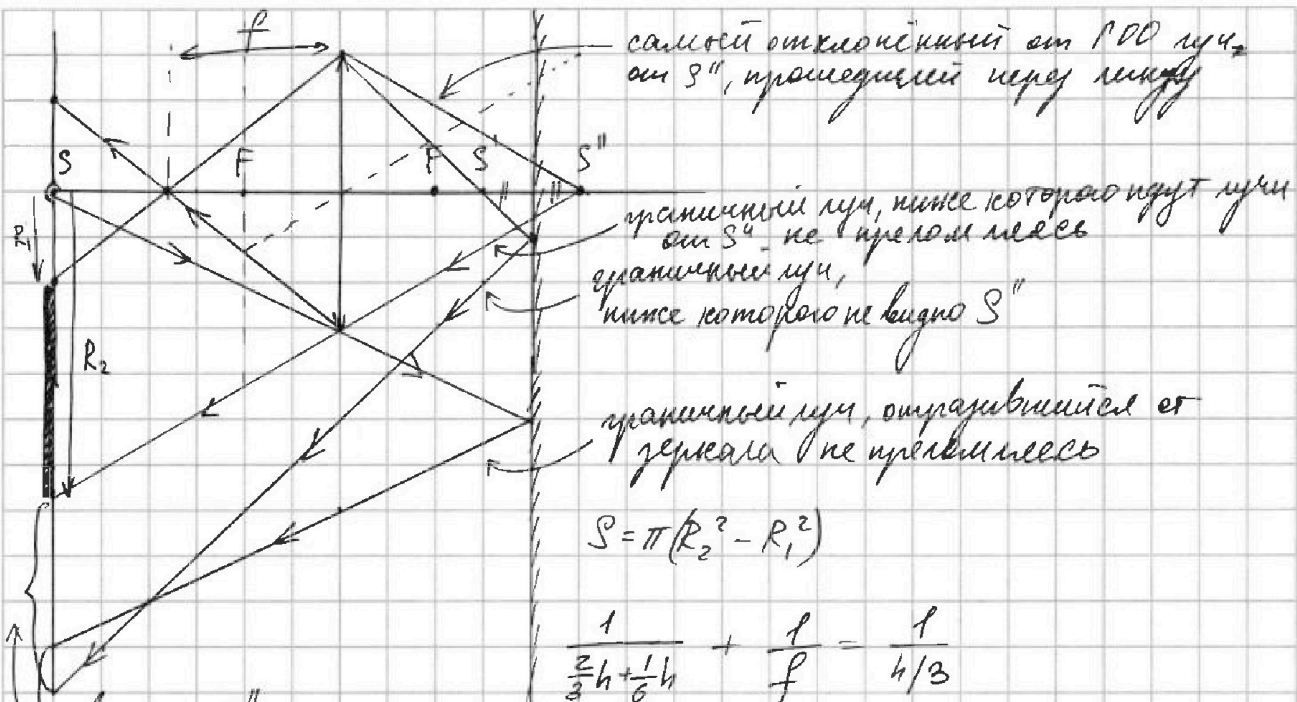 f
самый отклонённый от ГОО луч,
от S", прошедший через линзу
S
F
F
S'
S"
граничный луч, ниже которого идут лучи
от S" не преломляясь
R₁
граничный луч,
ниже которого не видно S"
R₂
граничный луч, отразившийся от
зеркала не преломляясь
S = π(R₂² - R₁²)
1/(2/3 h + 1/6 h) + 1/f = 1/(h/3)